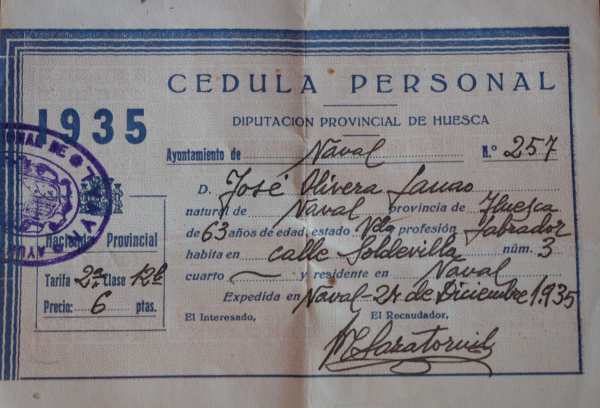 CEDULA PERSONAL
1935
DIPUTACION PROVINCIAL DE HUESCA
Ayuntamiento de Naval N.º 257
D. José Olivera Lanao
natural de Naval provincia de Huesca
de 63 años de edad, estado Vdo profesión Labrador
habita en calle Soldevilla núm. 3
cuarto — y residente en Naval
Expedida en Naval - 24 de Diciembre 1.935
El Interesado, El Recaudador,
Hacienda Provincial
Tarifa 2ª Clase 12ª
Precio: 6 ptas.